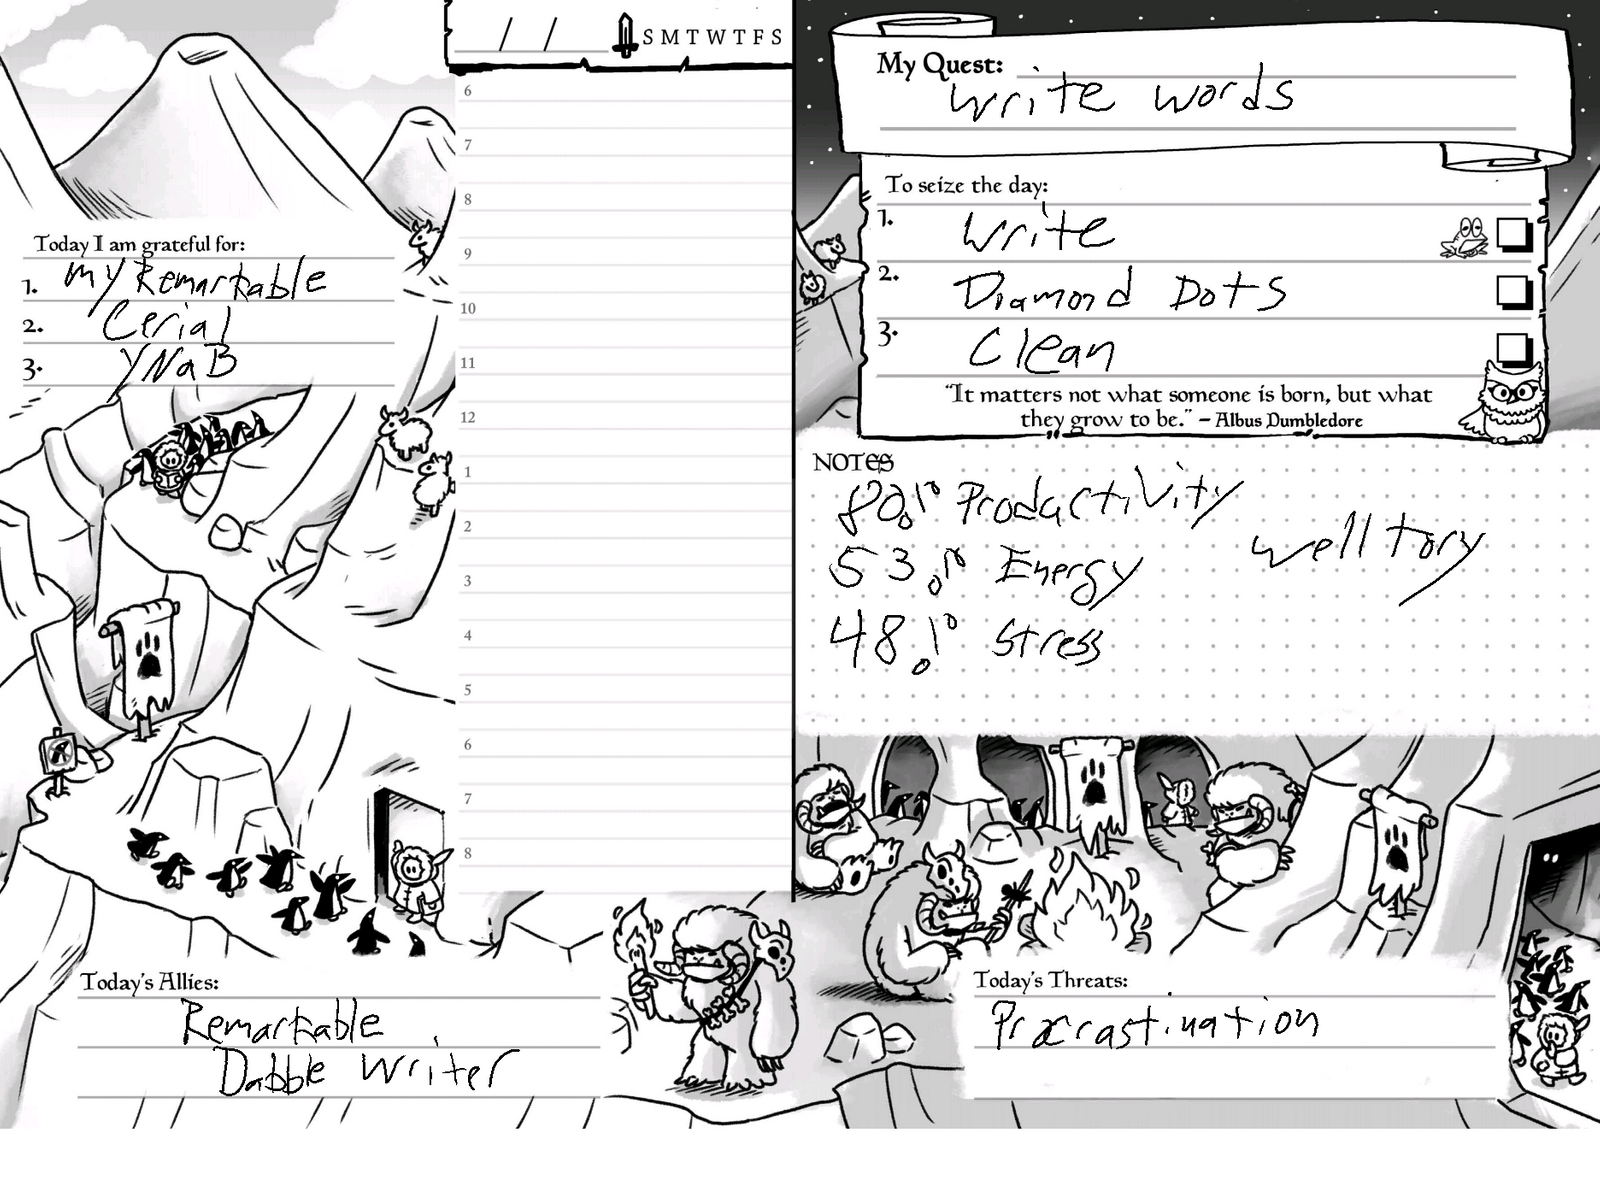 / / SMTWTFS
6
7
8
9
10
11
12
1
2
3
4
5
6
7
8
Today I am grateful for:
1. My Remarkable
2. Cerial
3. YNaB
Today's Allies:
Remarkable
Dabble Writer
My Quest:
Write words
To seize the day:
1. Write
2. Diamond Dots
3. Clean
"It matters not what someone is born, but what
they grow to be." – Albus Dumbledore
NOTES
80% Productivity
53% Energy
welltory
48% Stress
Today's Threats:
Procrastination